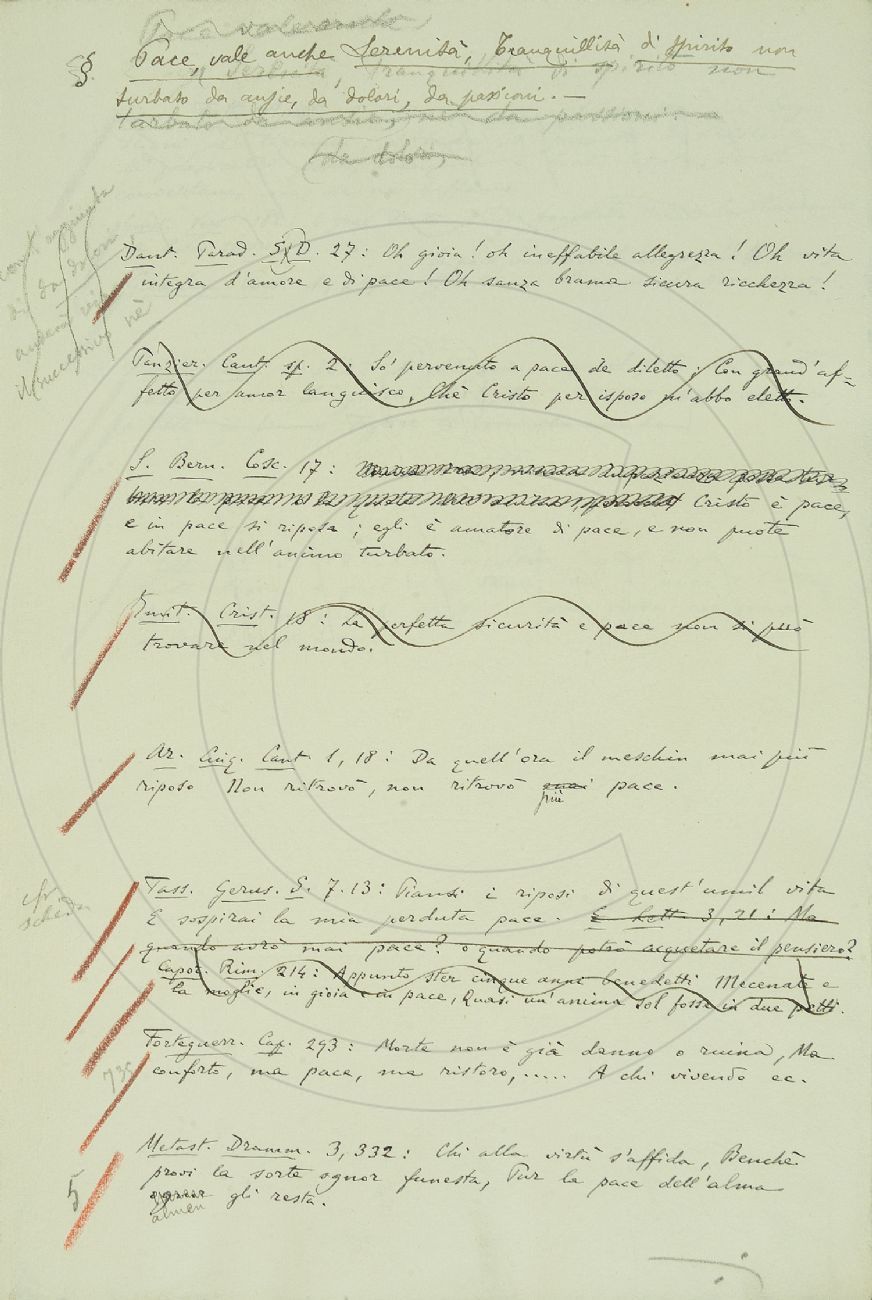 §. Pace, vale anche Serenità, Tranquillità di spirito non
turbato da ansie, da dolori, da passioni. —
da dolori,
Dant. Parad. S. D. 27: Oh gioia! oh ineffabile allegrezza! Oh vita
integra d'amore e di pace! Oh sanza brama sicura ricchezza!
Panzier. Cant. sp. 2: So' pervenuto a pace de diletto: Con grand'af=
fetto per amor languisco, Chè Cristo per isposo m'abbo eletto.
S. Bern. Cosc. 17:
Cristo è pace,
e in pace si riposa; egli è amatore di pace, e non puote
abitare nell'animo turbato.
Imit. Crist. 18: La perfetta sicurità e pace non si può
trovare nel mondo.
Ar. Cinq. Cant. 1, 18: Da quell'ora il meschin mai più
riposo Non ritrovò, non ritrovò mai pace.
più
cfr
scheda
Tass. Gerus. S. 7. 13: Piansi i riposi di quest'umil vita
E sospirai la mia perduta pace. E Lett. 3, 21: Ma
quando avrò mai pace? o quando potrò acquetare il pensiero?
Capor. Rim. 214: Appunto ster cinque anni benedetti Mecenate e
la moglie, in gioia e in pace, Quasi un'anima sol fosse in due petti.
Forteguerr. Cap. 293: Morte non è già danno o ruina, Ma
conforto, ma pace, ma ristoro,..... A chi vivendo ec.
Metast. Dramm. 3, 332: Chi alla virtù s'affida, Benchè
provi la sorte ognor funesta, Pur la pace dell'alma
ognor gli resta.
almen
5